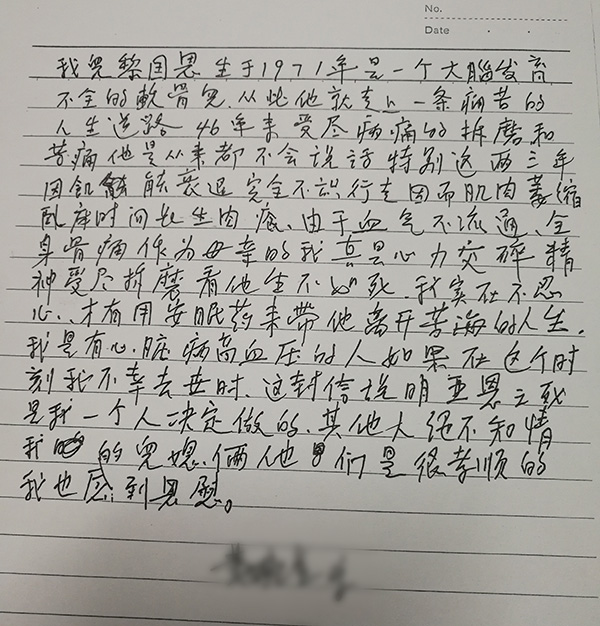 No.
Date
我兒黎因恩生于1971年是一个大腦发育
不全的軟骨兒.从此他就走上一条痛苦的
人生道路46年来受尽病痛的折磨和
苦痛他是从来都不会说話特别这两三年
因飢能衰退完全不识行走因而肌肉萎缩
卧床时间长生肉瘡、由于血气不流通、全
身骨痛作为母亲的我真是心力交碎精
神受尽折磨看他生不如死.我实在不忍
心、才有用安眠药来带他离开苦海的人生.
我是有心脏病高血压的人如果在这个时
刻我不幸去世时.这封信说明亚恩之死
是我一个人决定做的、其他大绝不知情
我的兒媳、俩他们是很孝顺的
我也感到恩慰。